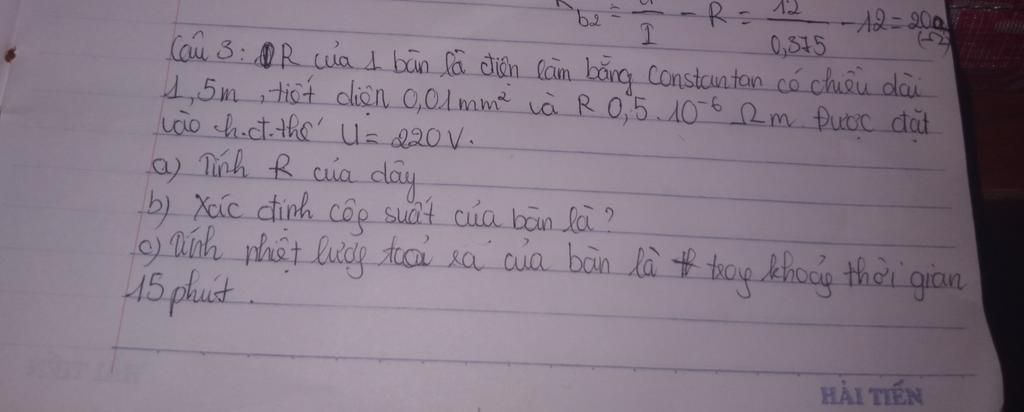 R b2 = U/I - R = 12/0,375 - 12 = 20 (Ω)
Câu 3: R của 1 bàn là điện làm bằng Constantan có chiều dài
1,5m, tiết diện 0,01mm² và R 0,5.10⁻⁶ Ωm. Được đặt
vào h.đ.thế U = 220V.
a) Tính R của dây
b) Xác định côg suất của bàn là?
c) Tính nhiệt lượg toả ra của bàn là trog khoảg thời gian
15 phút.
HẢI TIẾN